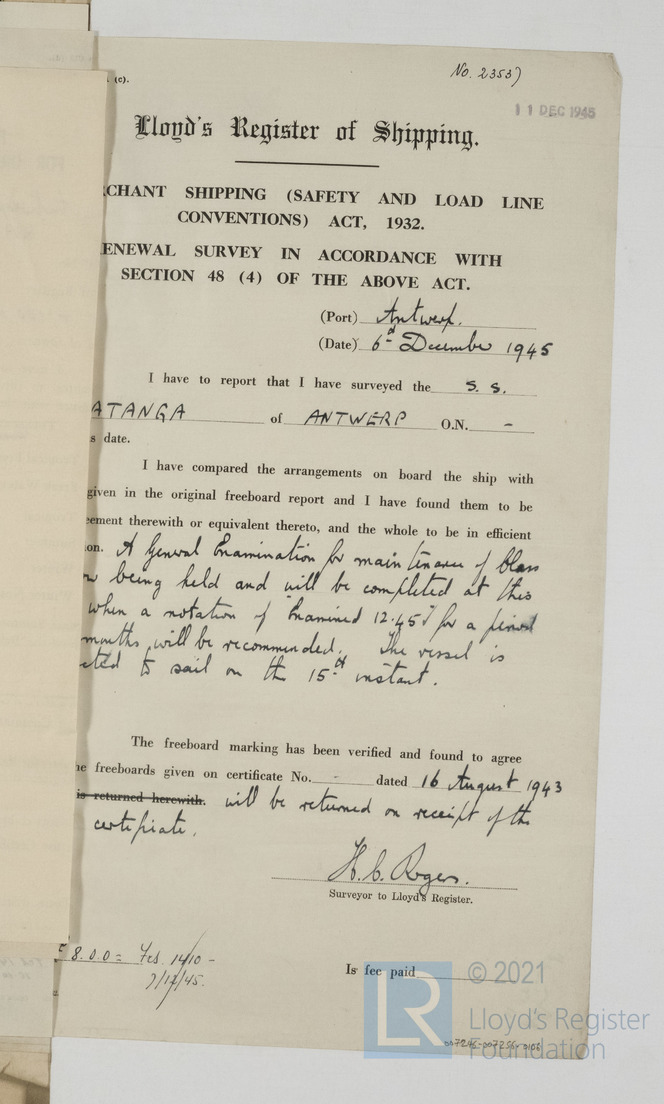 . (c).
No. 23537
11 DEC 1945
Lloyd's Register of Shipping.
CHANT SHIPPING (SAFETY AND LOAD LINE
CONVENTIONS) ACT, 1932.
ENEWAL SURVEY IN ACCORDANCE WITH
SECTION 48 (4) OF THE ABOVE ACT.
(Port) Antwerp.
(Date) 6th December 1945
I have to report that I have surveyed the S. S.
ATANGA of ANTWERP O.N. -
s date.
I have compared the arrangements on board the ship with
given in the original freeboard report and I have found them to be
eement therewith or equivalent thereto, and the whole to be in efficient
on. A General Examination for maintenance of Class
being held and will be completed at this
when a notation of Examined 12.45 for a period
months will be recommended. The vessel is
cted to sail on the 15th instant.
The freeboard marking has been verified and found to agree
e freeboards given on certificate No. - dated 16 August 1943
is returned herewith. will be returned on receipt of the
certificate.
H.C. Rogers.
Surveyor to Lloyd's Register.
8.0.0 = Fcs. 1410 -
7/12/45.
Is fee paid
© 2021
LR
Lloyd's Register
Foundation
007245-007255-0106